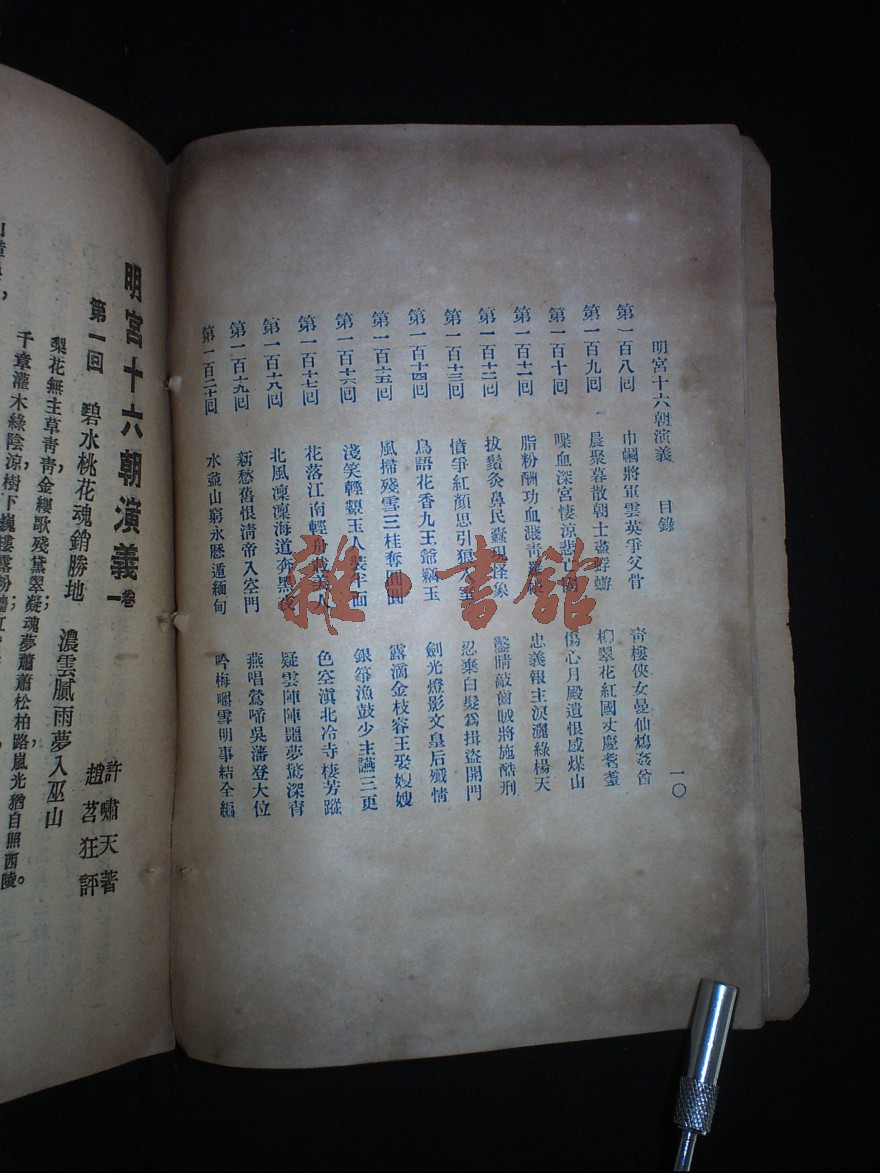 明宮十六朝演義　目錄　一〇
第一百八回　巾幗將軍雲英爭父骨　奇樓俠女曼仙鴆衾酋
第一百九回　晨聚暮散朝士盡蜉蝣　柳翠花紅國丈慶耄耋
第一百十回　喋血深宮悽涼悲亡國　傷心月殿遺恨感煤山
第一百十一回　脂粉酬功血濺青羅帳　忠義報主淚灑綠楊天
第一百十二回　拔鬚灸鼻民蠹現怪象　鑿睛敲齒賊將施酷刑
第一百十三回　憤爭紅顏思引狼入室　忍棄白髮為揖盜開門
第一百十四回　鳥語花香九王爺竊玉　劍光燈影文皇后殲情
第一百十五回　風掃殘雪三桂奪圓圓　露滴金枝容王娶嫂嫂
第一百十六回　淺笑輕顰玉人裝半面　銀箏漁鼓少主讌三更
第一百十七回　花落江南輕舟載美人　色空滇北冷寺棲芳蹤
第一百十八回　北風凜凜海道奔黑夜　疑雲陣陣噩夢驚深宵
第一百十九回　新愁舊恨清帝入空門　燕唱鶯啼吳藩登大位
第一百二十回　水盡山窮永曆遁緬甸　吟梅嚼雪明事結全編
明宮十六朝演義　卷一
許嘯天著
趙苕狂評
第一回　碧水桃花魂銷勝地　濃雲膩雨夢入巫山
梨花無主草青青，金縷歌殘黛翠凝魂夢蕭蕭松柏路嵐光猶自照西陵。
千章灌木綠陰涼樹下巍樓露粉牆
雜·書館